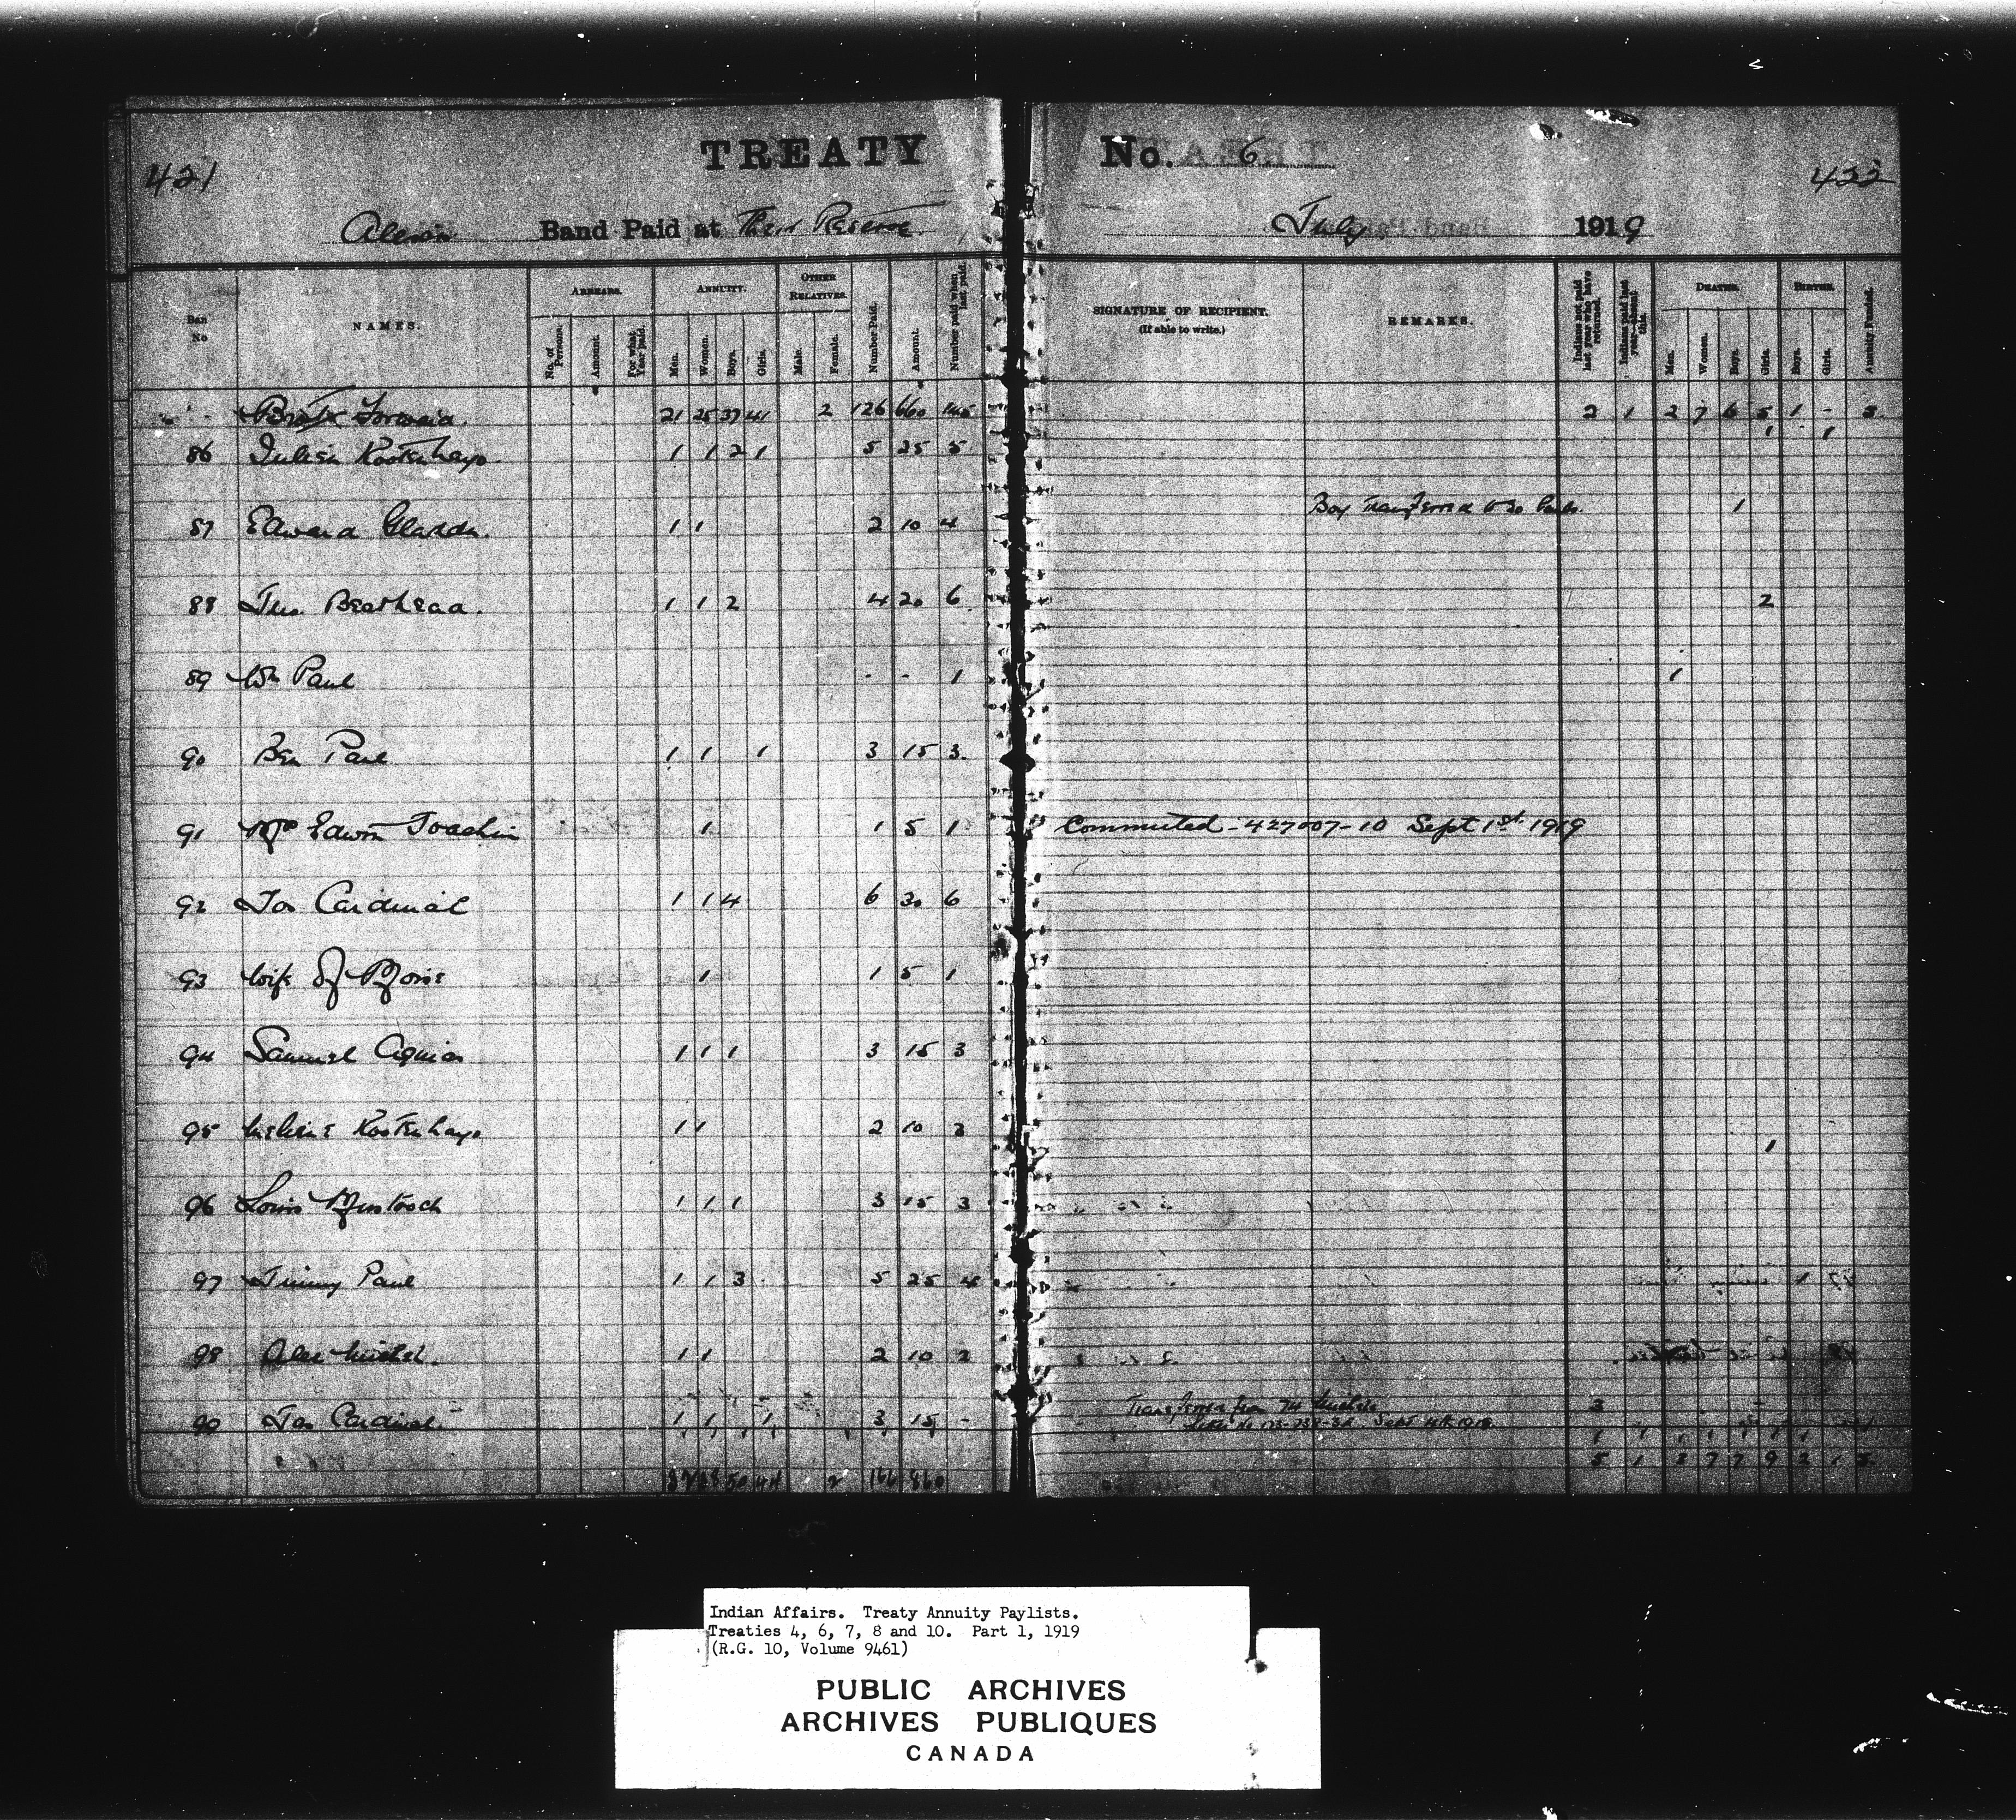 TREATY No. 6
421 422
Band Paid at Their Reserve July 1919
Ban No NAMES. ARREARS. ANNUITY. OTHER RELATIVES. Number Paid. Amount. Number paid when last paid. SIGNATURE OF RECIPIENT. (If able to write.) REMARKS. Indians not paid last year who have returned. Indians paid last year—absent this. DEATHS. BIRTHS. Annuity Funded.
No. of Persons. Amount. For what Year paid. Men. Women. Boys. Girls. Male. Female. Men. Women. Boys. Girls. Boys. Girls.
Forward 21 25 37 41 2 126 660 2 1 2 7 6 5 1 -
86 1 1 2 1 5 25 5 1 1
87 Edward 1 1 2 10 4 Boy Transferred to 1
88 Beathead. 1 1 2 4 20 6 2
89 Wm Paul - - 1 1
90 Ben Paul 1 1 1 3 15 3.
91 Edwin Joachim 1 1 5 1 Commuted - 427007-10 Sept 1st. 1919
92 Jos Cardinal 1 1 4 6 30 6
93 Wife of 1 1 5 1
94 Samuel 1 1 1 3 15 3
95 1 1 2 10 3 1
96 Louis 1 1 1 3 15 3
97 Jimmy Paul 1 1 3 5 25 4
98 Alec 1 1 2 10 2
99 Jas Cardinal 1 1 1 3 15 - Transferred from 3
5 1 3 7 7 9 2 1
Indian Affairs. Treaty Annuity Paylists.
Treaties 4, 6, 7, 8 and 10. Part 1, 1919
(R.G. 10, Volume 9461)
PUBLIC ARCHIVES
ARCHIVES PUBLIQUES
CANADA